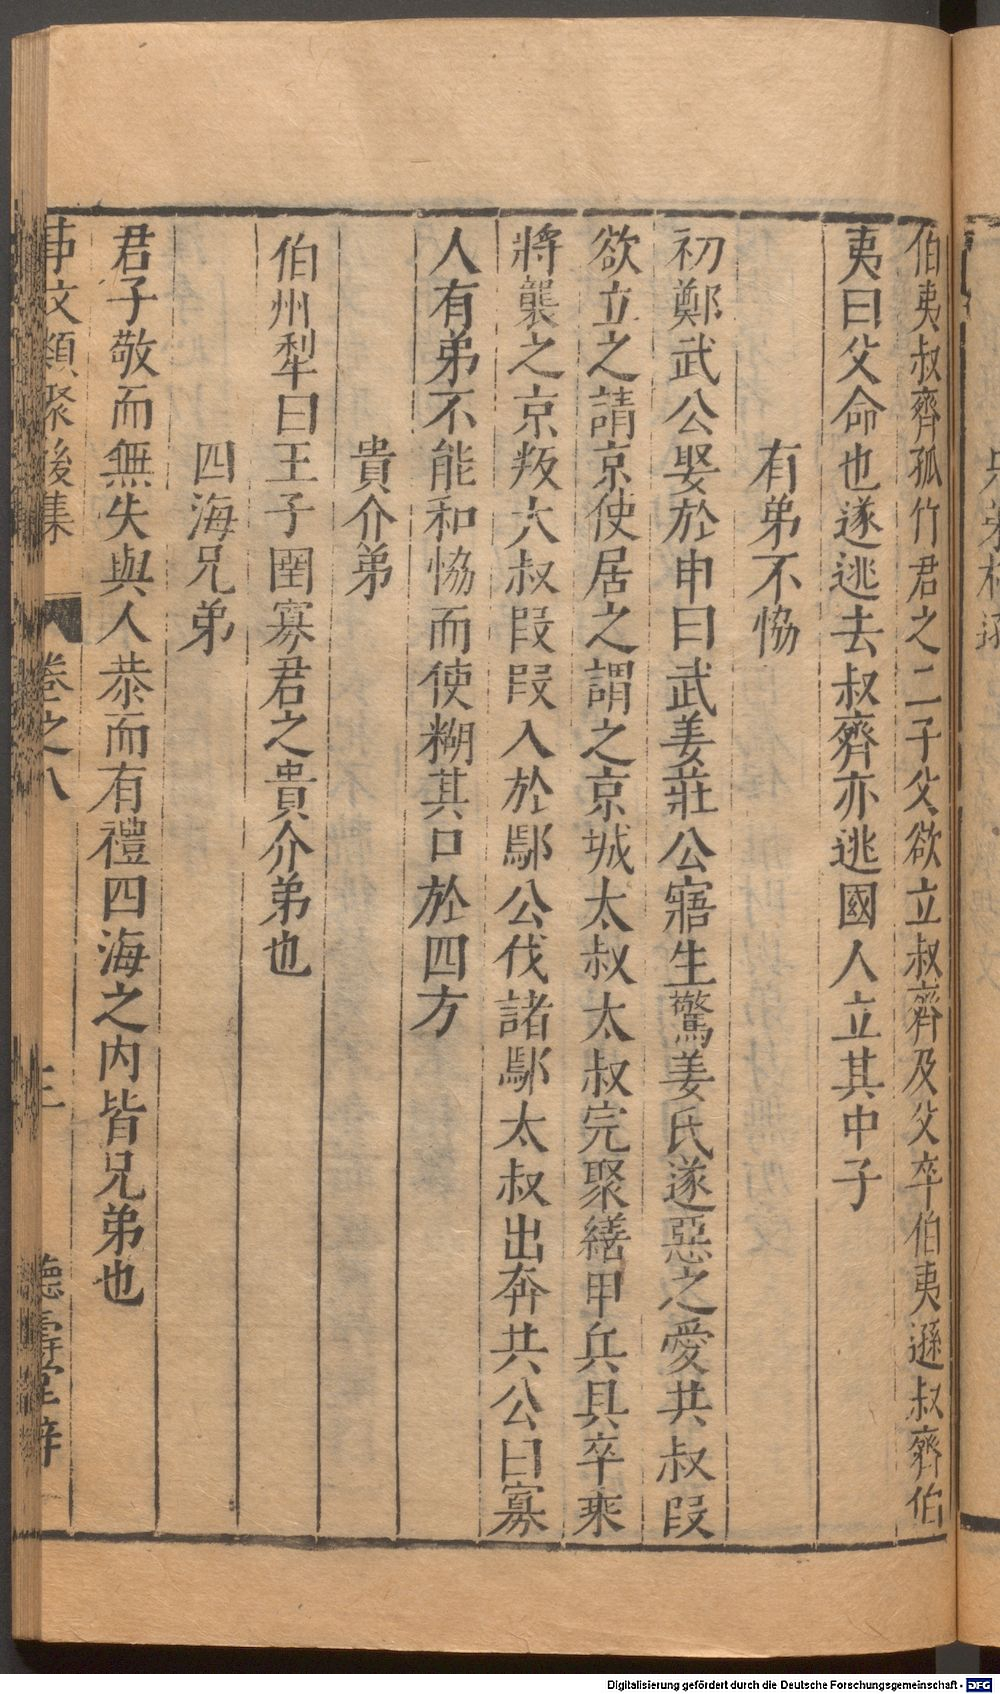 伯夷叔齊孤竹君之二子父欲立叔齊及父卒伯夷遜叔齊伯
夷曰父命也遂逃去叔齊亦逃國人立其中子
有弟不恊
初鄭武公娶於申曰武姜莊公寤生驚姜氏遂惡之愛共叔段
欲立之請京使居之謂之京城太叔太叔完聚繕甲兵具卒乘
將襲之京叛大叔段段入於鄢公伐諸鄢太叔出奔共公曰寡
人有弟不能和恊而使糊其口於四方
貴介弟
伯州犁曰王子圉寡君之貴介弟也
四海兄弟
君子敬而無失與人恭而有禮四海之内皆兄弟也
事文類聚後集 卷之八 三 德壽堂梓
Digitalisierung gefördert durch die Deutsche Forschungsgemeinschaft - DFG